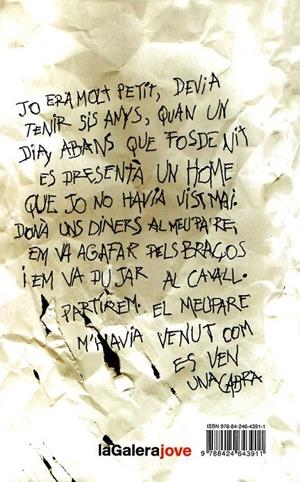 JO ERA MOLT PETIT, DEVIA
TENIR SIS ANYS, QUAN UN
DIA, ABANS QUE FOS DE NIT
ES PRESENTÀ UN HOME
QUE JO NO HAVIA VIST MAI.
DONÀ UNS DINERS AL MEU PARE;
EM VA AGAFAR PELS BRAÇOS
I EM VA PUJAR AL CAVALL.
PARTÍREM. EL MEU PARE
M'HAVIA VENUT COM
ES VEN
UNA CABRA
ISBN 978-84-246-4391-1
9 788424 643911
laGalerajove